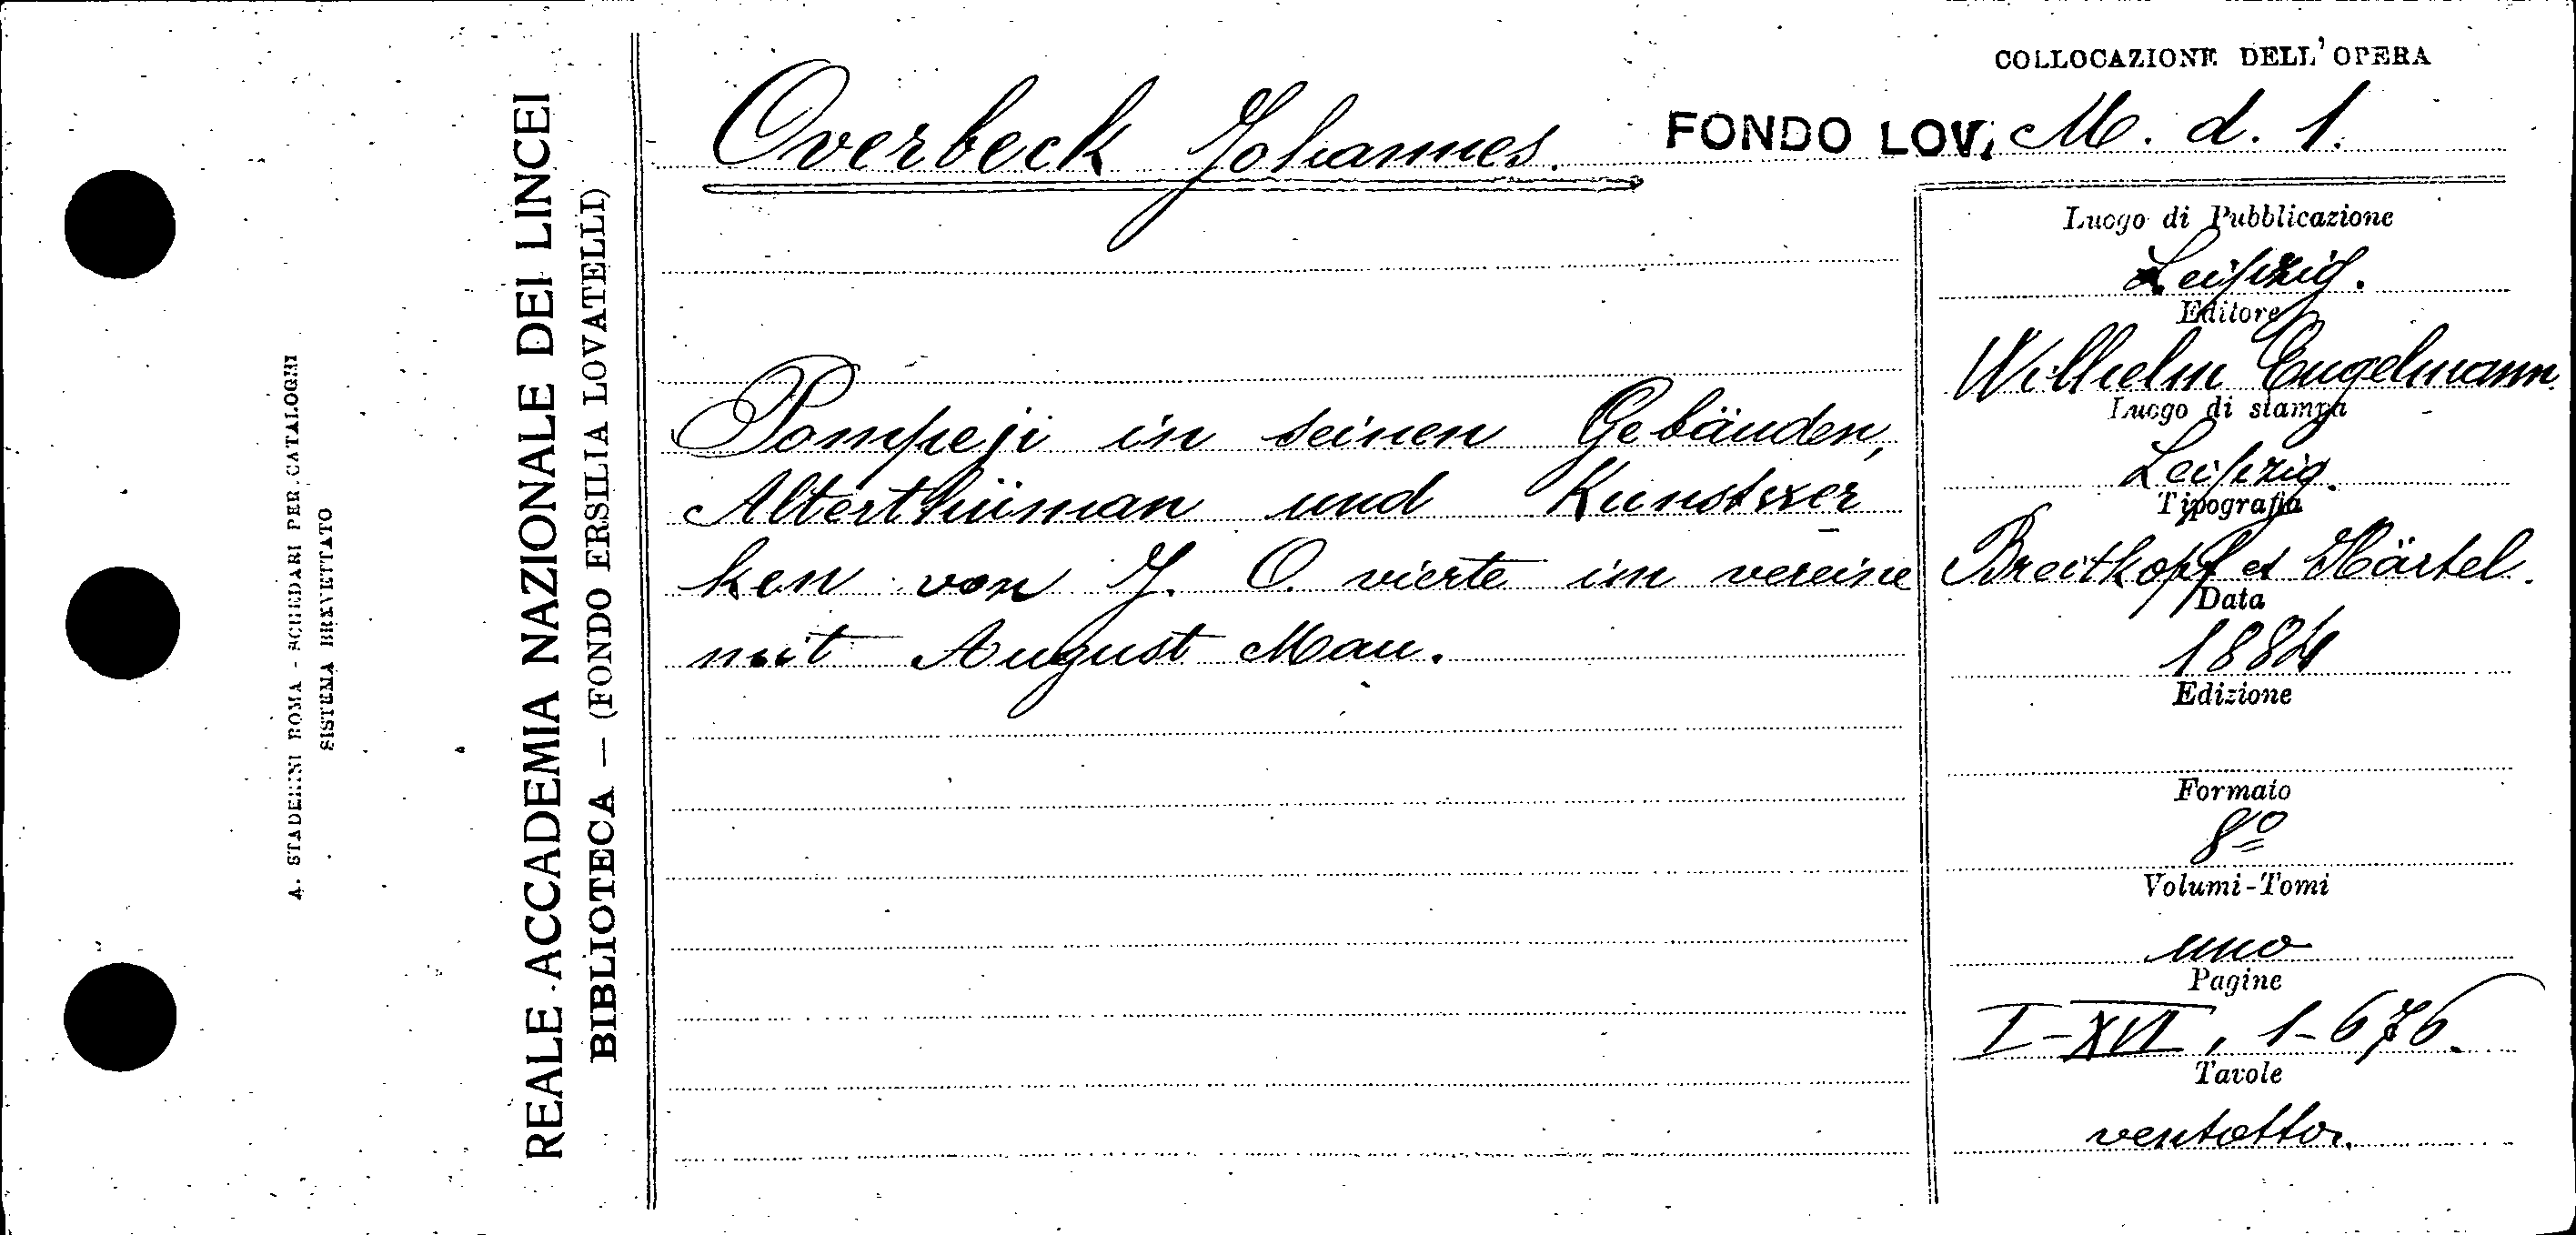 A. STADERINI ROMA - SCHEDARI PER CATALOGHI
SISTEMA BREVETTATO
REALE ACCADEMIA NAZIONALE DEI LINCEI
BIBLIOTECA — (FONDO ERSILIA LOVATELLI)
COLLOCAZIONE DELL'OPERA
Overbeck Johannes.
FONDO LOV. M. d. 1.
Pompeji in seinen Gebäuden,
Alterthüman und Kunstwer
ken von J. O. vierte im vereine
mit August Mau.
Luogo di Pubblicazione
Leipzig.
Editore
Wilhelm Engelmann
Luogo di stampa
Leipzig.
Tipografia
Breitkopf et Härtel.
Data
1884
Edizione
Formato
8º
Volumi-Tomi
uno
Pagine
I-XVI, 1-676.
Tavole
ventotto.